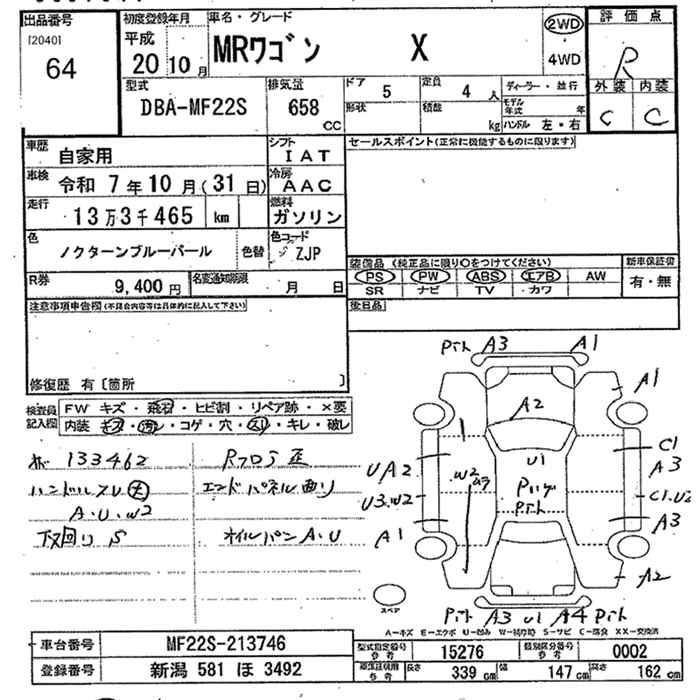 出品番号 初度登録年月 車名・グレード 評価点
[2040] 平成 MRワゴン X 2WD R
64 20 10 月 4WD
型式 排気量 ドア 5 定員 4 人 ディーラー・並行 外装 内装
DBA-MF22S 658 cc 形状 積載 kg モデル年式 年 C C
ハンドル 左・右
車歴 自家用 シフト IAT セールスポイント(正常に機能するものに限ります)
車検 令和 7年 10月(31日) 冷房 AAC
走行 13万3千465 km 燃料 ガソリン
色 ノクターンブルーパール 色替 色コード ZJP
装備品 (純正品に限り○をつけてください) 新車保証書
R券 9,400 円 名変通知期限 月 日 PS PW ABS エアB AW 有・無
SR ナビ TV カワ
注意事項申告欄(不具合内容等は具体的に記入して下さい) 後日品
修復歴 有〔箇所 〕
検査員記入欄 FW キズ・飛石・ヒビ割・リペア跡・×要
内装 キズ・汚れ・コゲ・穴・スレ・キレ・破レ
133462 Rフロア歪
ハンドルスレ 大 エンドパネル曲り
A・U・W2
下回り S オイルパン A・U
Pｲﾄ A3 A1
A1
A2
U1
C1
A3
UA2
W2
U3.W2
C1.U2
A3
A1
A2
スペア
Pｲﾄ A3 U1 A4 Pｲﾄ
A-キズ E-エクボ U-凹み W-補修跡 S-サビ C-腐食 XX-交換済
車台番号 MF22S-213746 型式指定番号 参考 15276 類別区分番号 参考 0002
登録番号 新潟 581 ほ 3492 参考 長さ 339 cm 幅 147 cm 高さ 162 cm